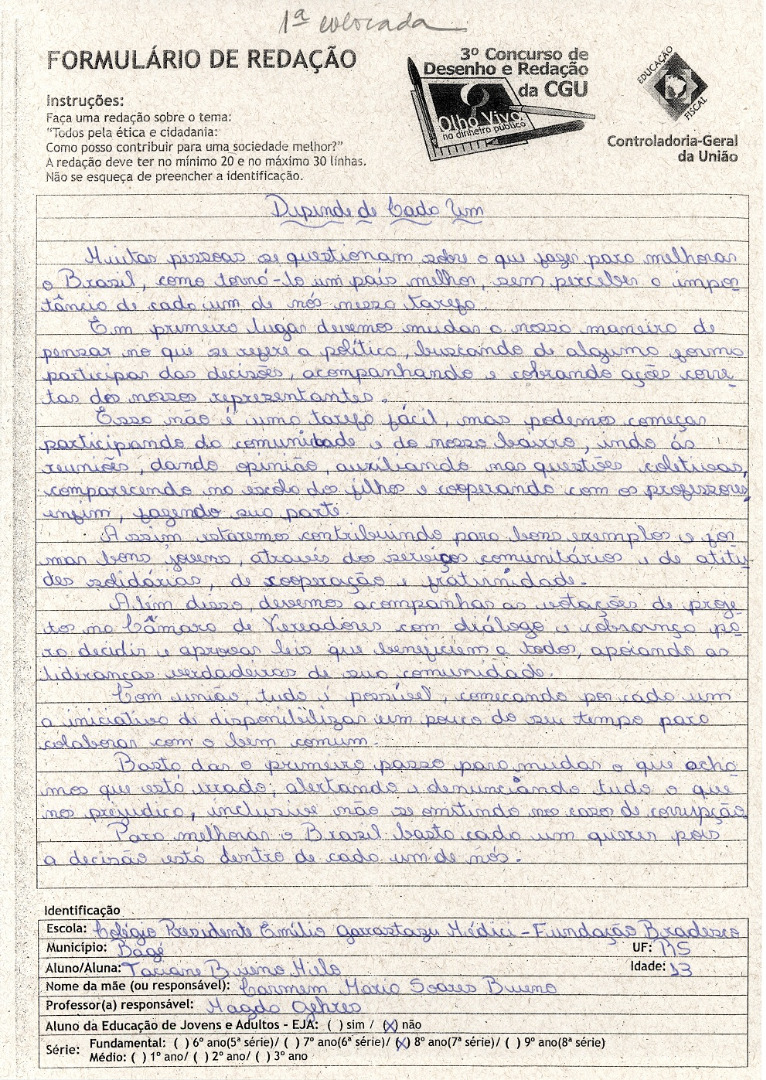 1ª colocada
FORMULÁRIO DE REDAÇÃO
3º Concurso de
Desenho e Redação
da CGU
Olho Vivo
no dinheiro público
EDUCAÇÃO
FISCAL
Controladoria-Geral
da União
Instruções:
Faça uma redação sobre o tema:
"Todos pela ética e cidadania:
Como posso contribuir para uma sociedade melhor?"
A redação deve ter no mínimo 20 e no máximo 30 linhas.
Não se esqueça de preencher a identificação.
Depende de Cada Um
Muitas pessoas se questionam sobre o que fazer para melhorar
o Brasil, como torná-lo um país melhor, sem perceber a impor-
tância de cada um de nós nessa tarefa.
Em primeiro lugar devemos mudar a nossa maneira de
pensar no que se refere a política, buscando de alguma forma
participar das decisões, acompanhando e cobrando ações corre-
tas dos nossos representantes.
Essa não é uma tarefa fácil, mas podemos começar
participando da comunidade e do nosso bairro, indo ás
reuniões, dando opinião, auxiliando nas questões coletivas,
comparecendo na escola dos filhos e cooperando com os professores,
enfim, fazendo sua parte.
Assim estaremos contribuindo para bons exemplos e for
mar bons jovens, através dos serviços comunitários e de atitu-
des solidárias, de cooperação e fraternidade.
Além disso, devemos acompanhar as votações de proje-
tos na Câmara de Vereadores com diálogo e cobrança pa-
ra decidir e aprovar leis que beneficiem a todos, apoiando as
lideranças verdadeiras de sua comunidade.
Com união, tudo é possível, começando por cada um
a iniciativa di disponibilizar um pouco do seu tempo para
colaborar com o bem comum.
Basta dar o primeiro passo para mudar o que acha-
mos que está errado, alertando e denunciando tudo o que
nos prejudica, inclusive não se omitindo nos casos de corrupção.
Para melhorar o Brasil basta cada um querer pois
a decisão está dentro de cada um de nós.
Identificação
Escola: Colégio Presidente Emílio Garrastazu Médici - Fundação Bradesco
Município: Bagé UF: RS
Aluno/Aluna: Taciane Bueno Melo Idade: 13
Nome da mãe (ou responsável): Carmem Maria Soares Bueno
Professor(a) responsável: Magda Gehres
Aluno da Educação de Jovens e Adultos - EJA: ( ) sim / (x) não
Série: Fundamental: ( ) 6º ano(5ª série)/ ( ) 7º ano(6ª série)/ (x) 8º ano(7ª série)/ ( ) 9º ano(8ª série)
Médio: ( ) 1º ano/ ( ) 2º ano/ ( ) 3º ano